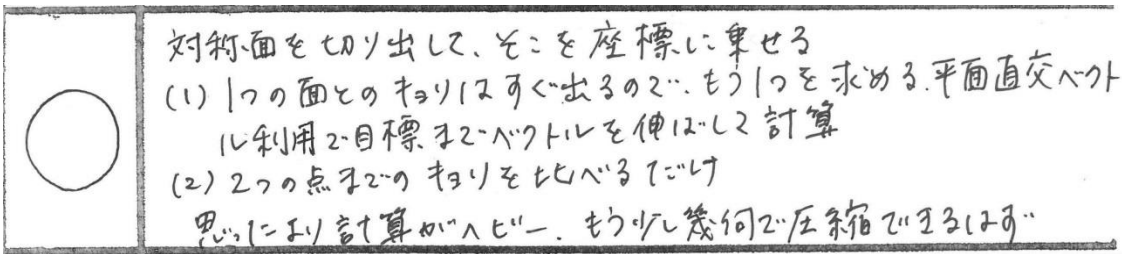 対称面を切り出して、そこを座標に乗せる
(1) 1つの面とのキョリはすぐ出るので、もう1つを求める.平面直交ベクト
ル利用で目標までベクトルを伸ばして計算
(2) 2つの点までのキョリを比べるだけ
思ったより計算がヘビー. もう少し幾何で圧縮できるはず